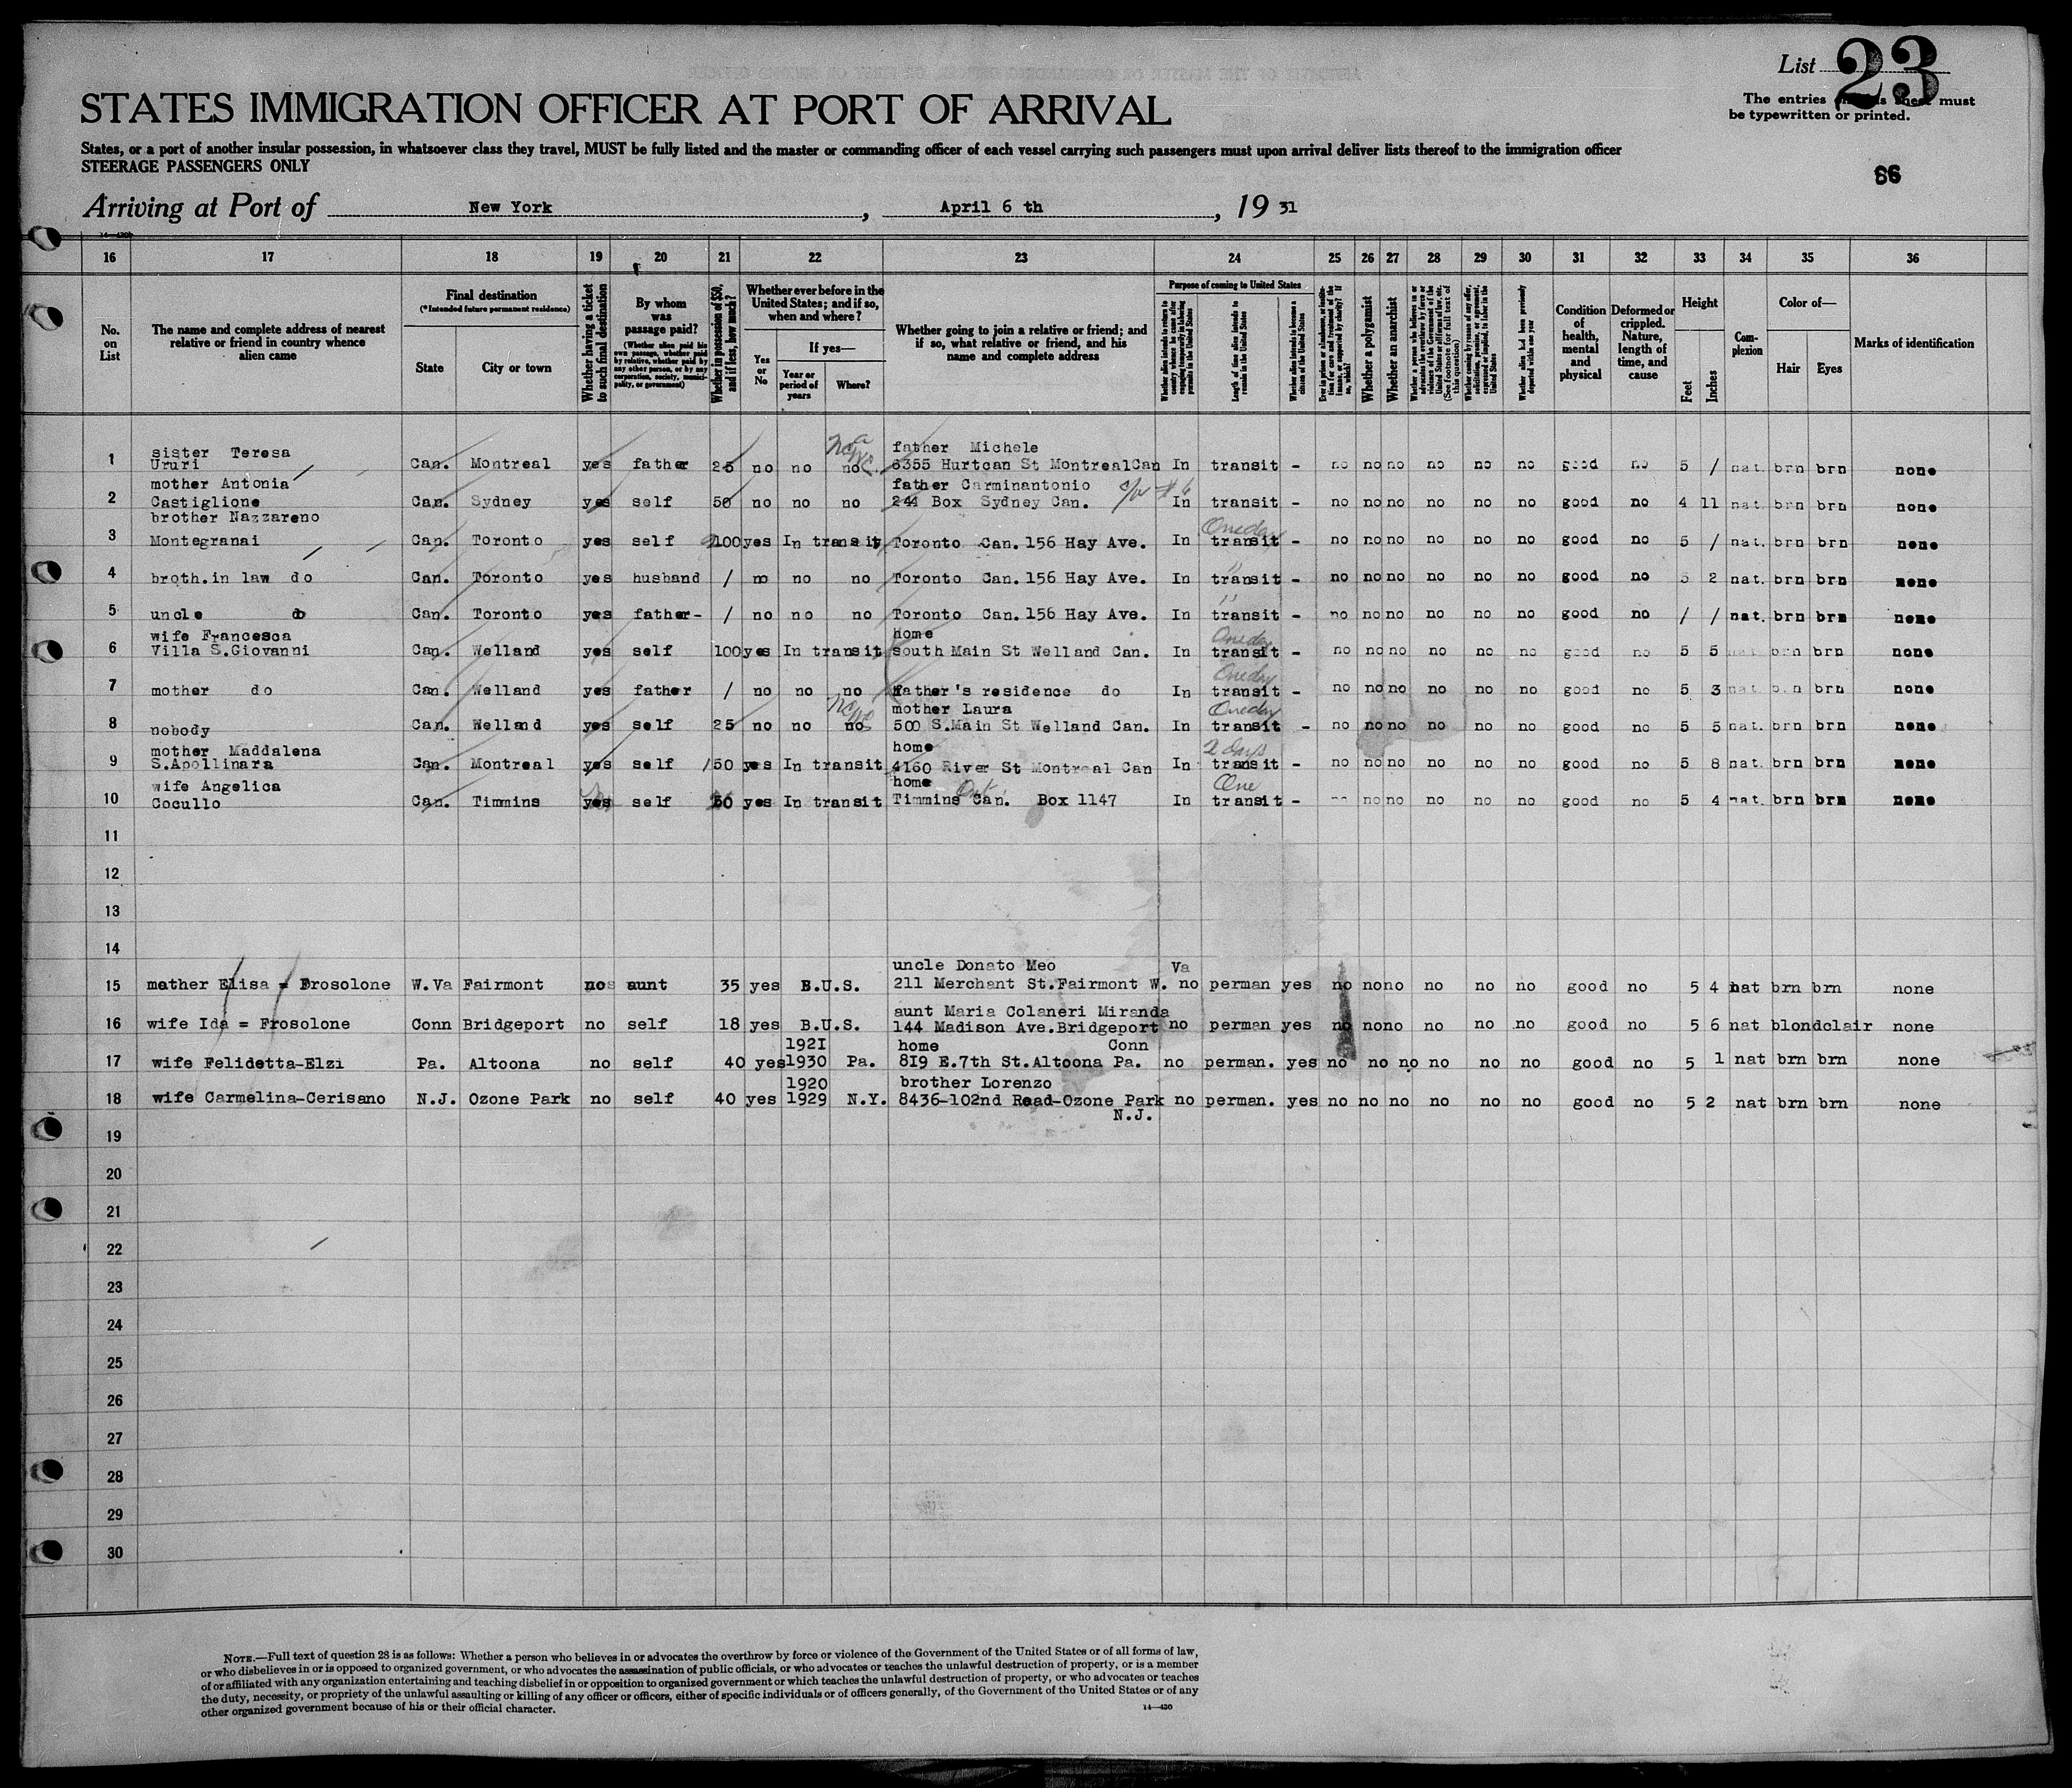 List 23
STATES IMMIGRATION OFFICER AT PORT OF ARRIVAL
The entries must
be typewritten or printed.
States, or a port of another insular possession, in whatsoever class they travel, MUST be fully listed and the master or commanding officer of each vessel carrying such passengers must upon arrival deliver lists thereof to the immigration officer
STEERAGE PASSENGERS ONLY
Arriving at Port of New York, April 6 th, 19 31
16 17 18 19 20 21 22 23 24 25 26 27 28 29 30 31 32 33 34 35 36
No. on List
The name and complete address of nearest relative or friend in country whence alien came
Final destination
(*Intended future permanent residence)
State
City or town
Whether having a ticket to such final destination
By whom was passage paid?
(Whether alien paid his own passage, whether paid by relative, whether paid by any other person, or by any corporation, society, municipality, or government)
Whether in possession of $50, and if less, how much?
Whether ever before in the United States; and if so, when and where?
Yes or No
If yes—
Year or period of years
Where?
Whether going to join a relative or friend; and if so, what relative or friend, and his name and complete address
Purpose of coming to United States
Length of time alien intends to remain in the United States
Whether alien intends to become a citizen of the United States
Whether a polygamist
Whether an anarchist
Condition of health, mental and physical
Deformed or crippled. Nature, length of time, and cause
Height
Feet
Inches
Complexion
Color of—
Hair
Eyes
Marks of identification
sister Teresa father Michele
1 Ururi Can. Montreal yes father 25 no no no 6355 Hurtcan St MontrealCan In transit - no no no no no no good no 5 / nat. brn brn none
mother Antonia father Carminantonio
2 Castiglione Can. Sydney yes self 50 no no no 244 Box Sydney Can. In transit - no no no no no no good no 4 11 nat. brn brn none
brother Nazzareno One day
3 Montegranai Can. Toronto yes self 100 yes In transit Toronto Can. 156 Hay Ave. In transit - no no no no no no good no 5 / nat. brn brn none
4 broth.in law do Can. Toronto yes husband / no no no Toronto Can. 156 Hay Ave. In transit - no no no no no no good no 5 2 nat. brn brn none
5 uncle do Can. Toronto yes father- / no no no Toronto Can. 156 Hay Ave. In transit - no no no no no no good no / / nat. brn brn none
wife Francesca home One day
6 Villa S.Giovanni Can. Welland yes self 100 yes In transit South Main St Welland Can. In transit - no no no no no no good no 5 5 nat. brn brn none
One day
7 mother do Can. Welland yes father / no no no father's residence do In transit - no no no no no no good no 5 3 nat. brn brn none
mother Laura One day
8 nobody Can. Welland yes self 25 no no no 500 S.Main St Welland Can. In transit - no no no no no no good no 5 5 nat. brn brn none
mother Maddalena home 2 days
9 S.Apollinara Can. Montreal yes self 50 yes In transit 4160 River St Montreal Can In transit - no no no no no no good no 5 8 nat. brn brn none
wife Angelica home Ont. One
10 Cocullo Can. Timmins yes self 50 yes In transit Timmins Can. Box 1147 In transit - no no no no no good no 5 4 nat. brn brn none
11
12
13
14
uncle Donato Meo Va
15 mother Elisa = Frosolone W.Va Fairmont no aunt 35 yes B.U.S. 211 Merchant St.Fairmont W. no perman yes no no no no no no good no 5 4 nat brn brn none
aunt Maria Colaneri Miranda
16 wife Ida = Frosolone Conn Bridgeport no self 18 yes B.U.S. 144 Madison Ave.Bridgeport no perman yes no no no no no no good no 5 6 nat blond clair none
1921 home Conn
17 wife Felidetta-Elzi Pa. Altoona no self 40 yes 1930 Pa. 819 E.7th St.Altoona Pa. no perman. yes no no no no no no good no 5 1 nat brn brn none
1920 brother Lorenzo
18 wife Carmelina-Cerisano N.J. Ozone Park no self 40 yes 1929 N.Y. 8436-102nd Road-Ozone Park no perman. yes no no no no no no good no 5 2 nat brn brn none
N.J.
19
20
21
22
23
24
25
26
27
28
29
30
NOTE.—Full text of question 28 is as follows: Whether a person who believes in or advocates the overthrow by force or violence of the Government of the United States or of all forms of law,
or who disbelieves in or is opposed to organized government, or who advocates the assassination of public officials, or who advocates or teaches the unlawful destruction of property, or is a member
of or affiliated with any organization entertaining and teaching disbelief in or opposition to organized government or which teaches the unlawful destruction of property, or who advocates or teaches
the duty, necessity, or propriety of the unlawful assaulting or killing of any officer or officers, either of specific individuals or of officers generally, of the Government of the United States or of any
other organized government because of his or their official character.
14—430